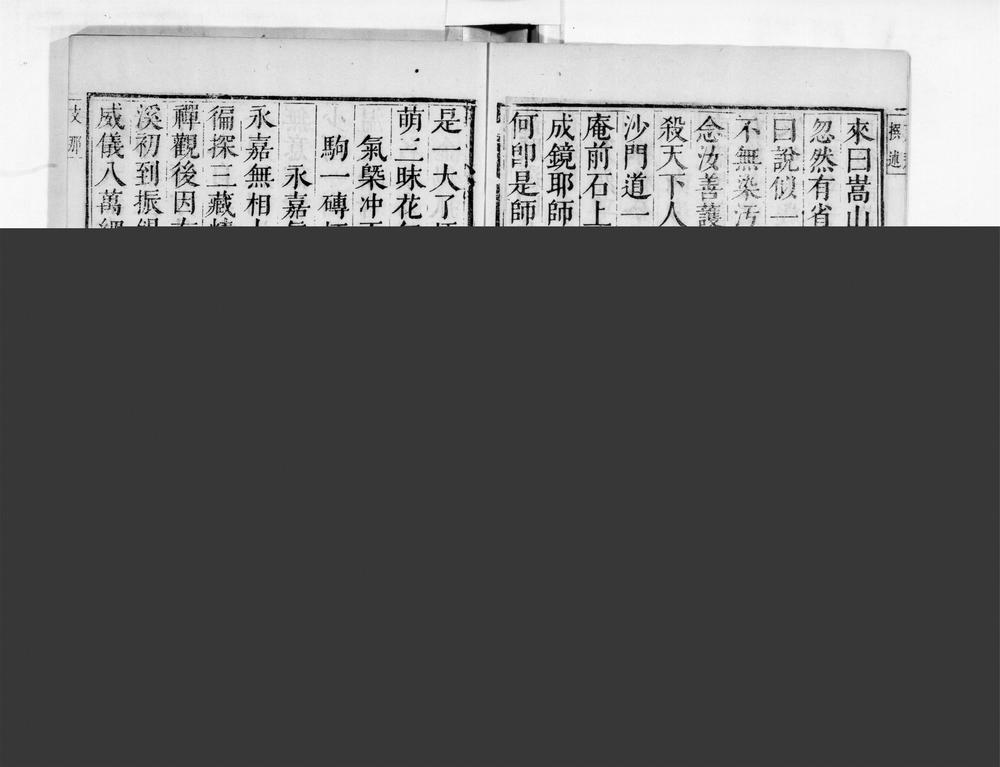 撰述
來曰嵩山
忽然有省
曰說似一
不無染汚
念汝善護
殺天下人
沙門道一
庵前石上
成鏡耶師
何卽是師
是一大了
萌三昧花
氣槩冲
駒一磚
永嘉
永嘉無相
徧探三藏
禪觀後因
溪初到振錫
威儀八萬細
支那